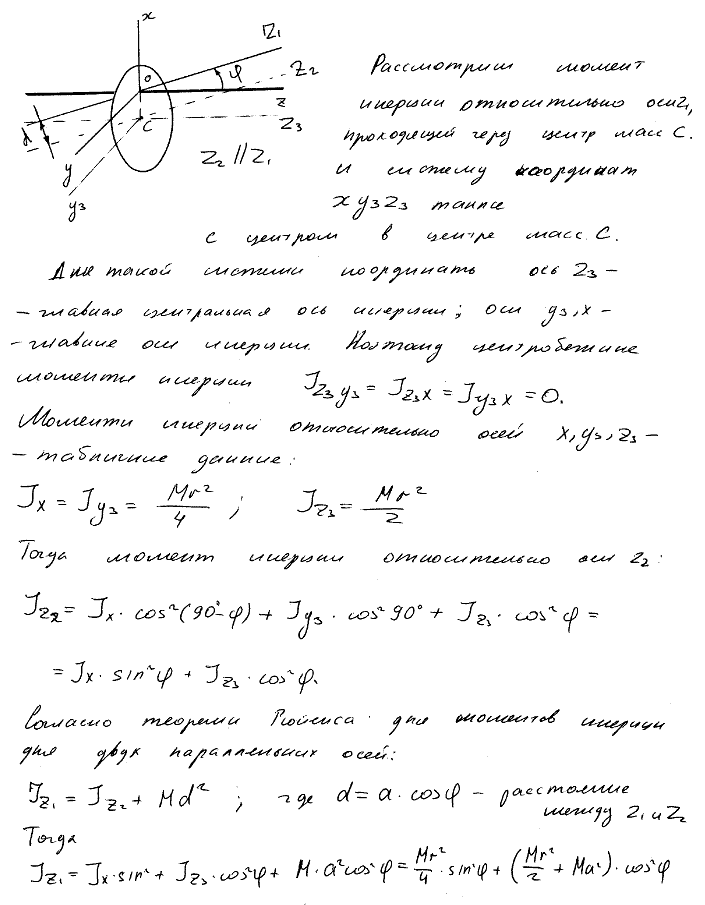 x
Z₁
Z₂
O
φ
z
C
Z₃
d
y
y₃
Z₂ // Z₁
Рассмотрим момент
инерции относительно оси Z₁,
проходящей через центр масс С.
и систему координат
x y₃ z₃ также
с центром в центре масс С.
Для такой системи координать ось Z₃ –
– главная центральная ось инерции; оси y₃, x –
– главние оси инерции. Поэтому центробежние
моменти инерции J_{z₃y₃} = J_{z₃x} = J_{y₃x} = 0.
Моменти инерции относительно осей x, y₃, z₃ –
– табличние данние:
J_x = J_{y₃} = Mr²/4 ; J_{z₃} = Mr²/2
Тогда момент инерции относительно оси z₂:
J_{z₂} = J_x · cos²(90°-φ) + J_{y₃} · cos² 90° + J_{z₃} · cos² φ =
= J_x · sin²φ + J_{z₃} · cos²φ.
Согласно теореми Гюйгенса для моментов инерции
для двух параллельних осей:
J_{z₁} = J_{z₂} + Md² ; где d = a · cosφ – расстояние
между Z₁ и Z₂
Тогда
J_{z₁} = J_x · sin² + J_{z₃} · cos²φ + M · a² cos²φ = Mr²/4 · sin²φ + (Mr²/2 + Ma²) · cos²φ